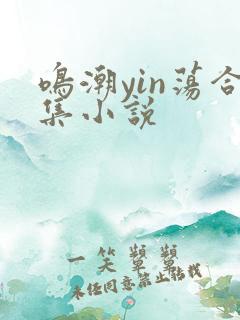 鸣潮yin荡合
集小说
一笑颦颦
未经同意禁止转载